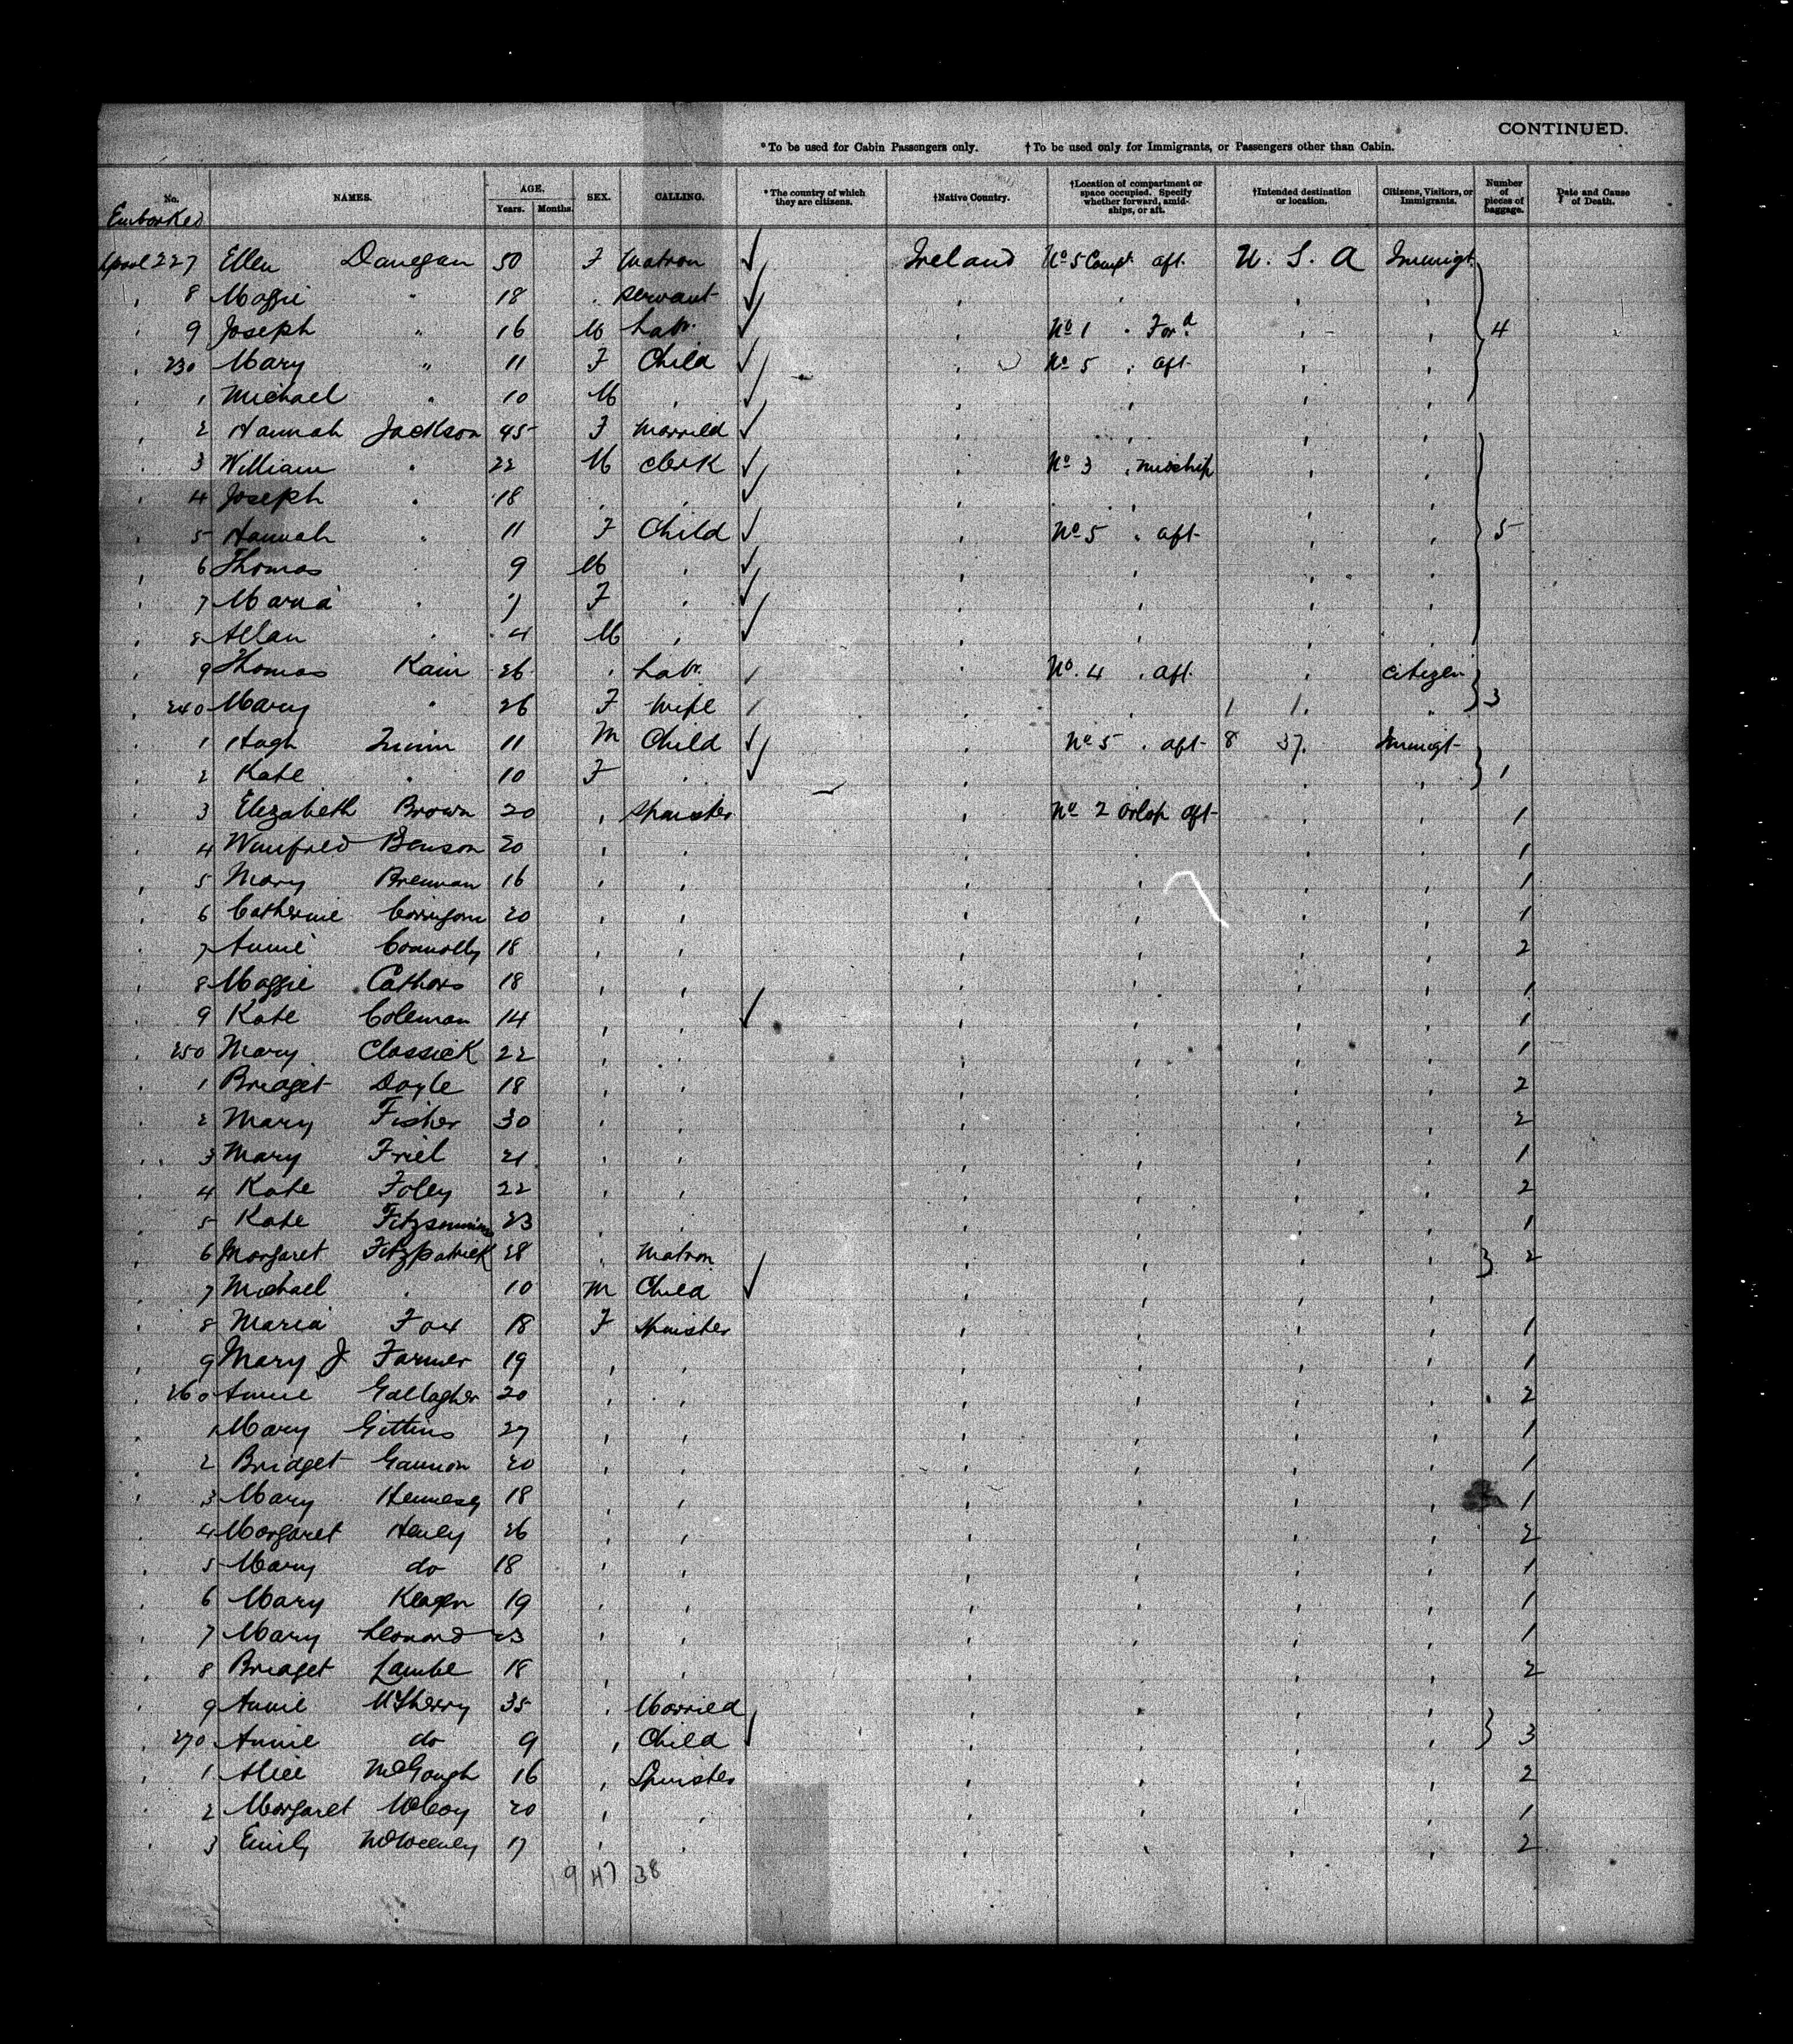 CONTINUED.
*To be used for Cabin Passengers only. †To be used only for Immigrants, or Passengers other than Cabin.
No. NAMES. AGE. Years. Months. SEX. CALLING. *The country of which they are citizens. †Native Country. †Location of compartment or space occupied. Specify whether forward, amidships, or aft. †Intended destination or location. Citizens, Visitors, or Immigrants. Number of pieces of baggage. Date and Cause of Death.
Embarked
Lpool 227 Ellen Danegan 50 F Matron Ireland No 5 Compt aft U. S. A Immigt
8 Maggie " 18 " Servant
9 Joseph " 16 M Labr. No 1 " Ford 4
230 Mary " 11 F Child No 5 " aft
1 Michael " 10 M "
2 Hannah Jackson 45 F Married
3 William " 22 M Clerk No 3 " midship
4 Joseph " 18 " "
5 Hannah " 11 F Child No 5 " aft 5
6 Thomas " 9 M "
7 Maria " 7 F "
8 Allan " 4 M "
9 Thomas Kain 26 " Labr. No. 4 " aft " Citizen
240 Mary " 26 F Wife " 1 1. " 3
1 Hugh 11 M Child No 5 " aft 8 37. Immigt
2 Kate " 10 F " 1
3 Elizabeth Brown 20 " Spinster No 2 Orlop aft 1
4 Winifred Benson 20 " " 1
5 Mary Brennan 16 " " 1
6 Catherine 20 " " 1
7 Annie Connolly 18 " " 2
8 Maggie Cathers 18 " " 1
9 Kate Coleman 14 " " 1
250 Mary Classick 22 " " 1
1 Bridget Doyle 18 " " 2
2 Mary Fisher 30 " " 2
3 Mary Friel 21 " " 1
4 Kate Foley 22 " " 2
5 Kate Fitzsimmins 23 " " 1
6 Margaret Fitzpatrick 28 " Matron 2
7 Michael " 10 M Child
8 Maria Fox 18 F Spinster 1
9 Mary J Farmer 19 " " 1
260 Annie Gallagher 20 " " 2
1 Mary Gittins 27 " " 1
2 Bridget Gannon 20 " " 1
3 Mary Hennesy 18 " " 1
4 Margaret Heney 26 " " 2
5 Mary do 18 " " 1
6 Mary Keagen 19 " " 1
7 Mary Leonard 23 " " 1
8 Bridget Lambe 18 " " 2
9 Annie McSherry 35 " Married
270 Annie do 9 " Child 3
1 Alice McGough 16 " Spinster 2
2 Margaret McCoy 20 " " 1
3 Emily McWeeney 17 " " 2
9 47 38